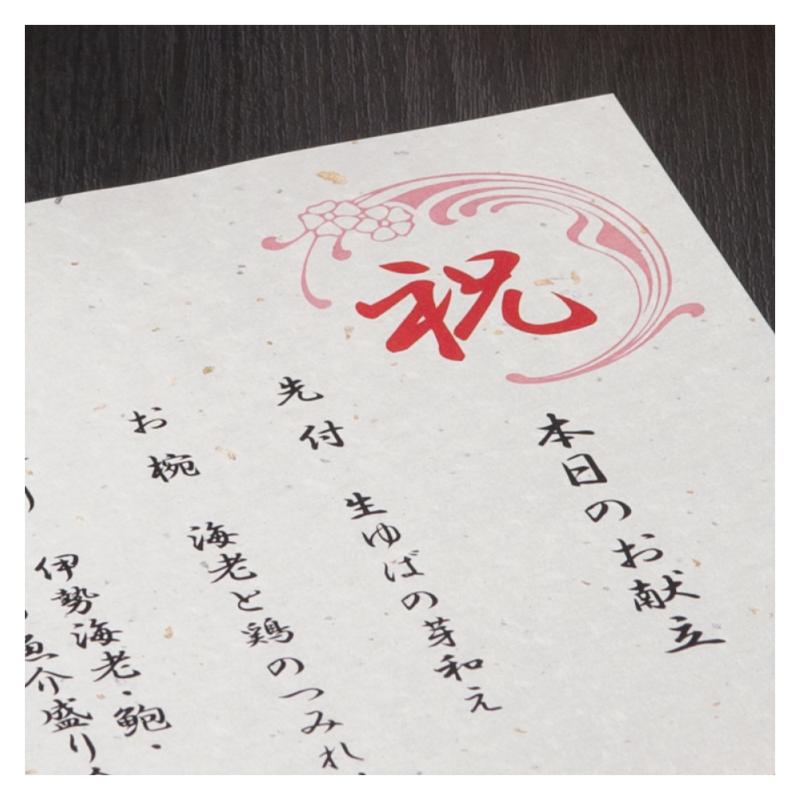 祝
本日のお献立
先付
生ゆばの芽和え
お椀
海老と鶏のつみれ
り
伊勢海老・鮑・
魚介盛り